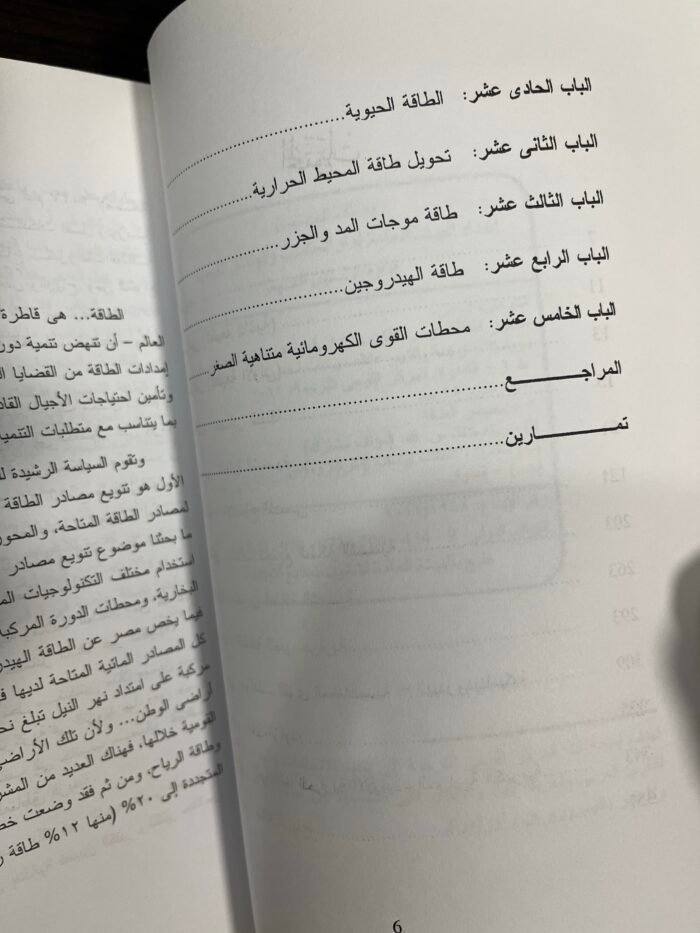 الباب الحادى عشر: الطاقة الحيوية
الباب الثانى عشر: تحويل طاقة المحيط الحرارية
الباب الثالث عشر: طاقة موجات المد والجزر
الباب الرابع عشر: طاقة الهيدروجين
الباب الخامس عشر: محطات القوى الكهرومائية متناهية الصغر
المراجـــــــع
تمـــــــارين
6
الطاقة... هى قاطرة
العالم – أن تنهض تنمية دون
إمدادات الطاقة من القضايا
وتأمين احتياجات الأجيال
بما يتناسب مع متطلبات
وتقوم السياسة الرشيدة
الأول هو تنويع مصادر الطاقة
لمصادر الطاقة المتاحة، والمحور
ما بحثنا موضوع تنويع مصادر
استخدام مختلف التكنولوجيات
البخارية، ومحطات الدورة المركبة
فيما يخص مصر عن الطاقة
كل المصادر المائية المتاحة لديها
مركبة على امتداد نهر النيل تبلغ
أراضى الوطن... ولأن تلك
القومية خلالها، فهناك العديد من
وطاقة الرياح، ومن ثم فقد وضعت
المتجددة إلى ٢٠% (منها ١٢% طاقة